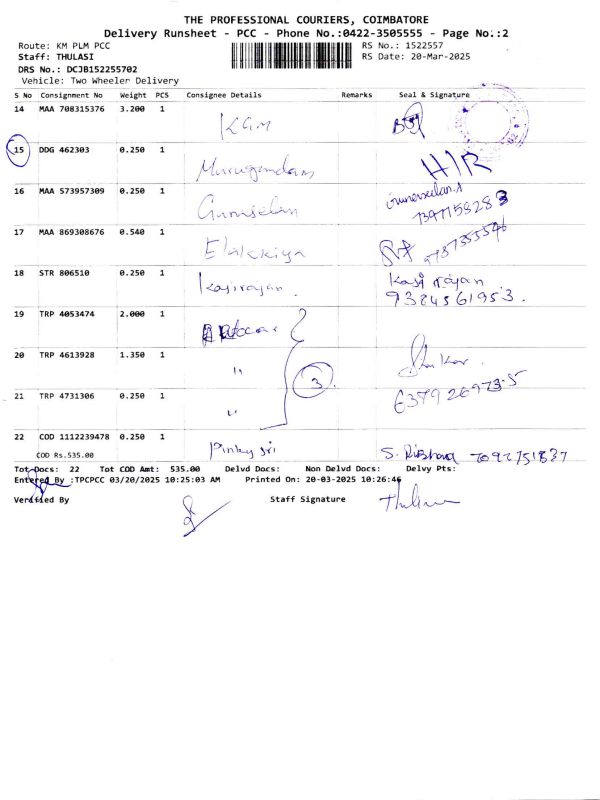 THE PROFESSIONAL COURIERS, COIMBATORE
Delivery Runsheet - PCC - Phone No.:0422-3505555 - Page No.:2
Route: KM PLM PCC RS No.: 1522557
Staff: THULASI RS Date: 20-Mar-2025
DRS No.: DCJB152255702
Vehicle: Two Wheeler Delivery
S No Consignment No Weight PCS Consignee Details Remarks Seal & Signature
14 MAA 708315376 3.200 1 KGM
15 DDG 462303 0.250 1 Murugandam H/R
16 MAA 573957309 0.250 1 Gunaselan
17 MAA 869308676 0.540 1 Elakkiya
18 STR 806510 0.250 1 Kasirajan. Kasi rajan
9384561953.
19 TRP 4053474 2.000 1
20 TRP 4613928 1.350 1 " 3
21 TRP 4731306 0.250 1 " 6379269735
22 COD 1112239478 0.250 1 Pinky sri
COD Rs.535.00
Tot Docs: 22 Tot COD Amt: 535.00 Delvd Docs: Non Delvd Docs: Delvy Pts:
Entered By :TPCPCC 03/20/2025 10:25:03 AM Printed On: 20-03-2025 10:26:46
Verified By Staff Signature